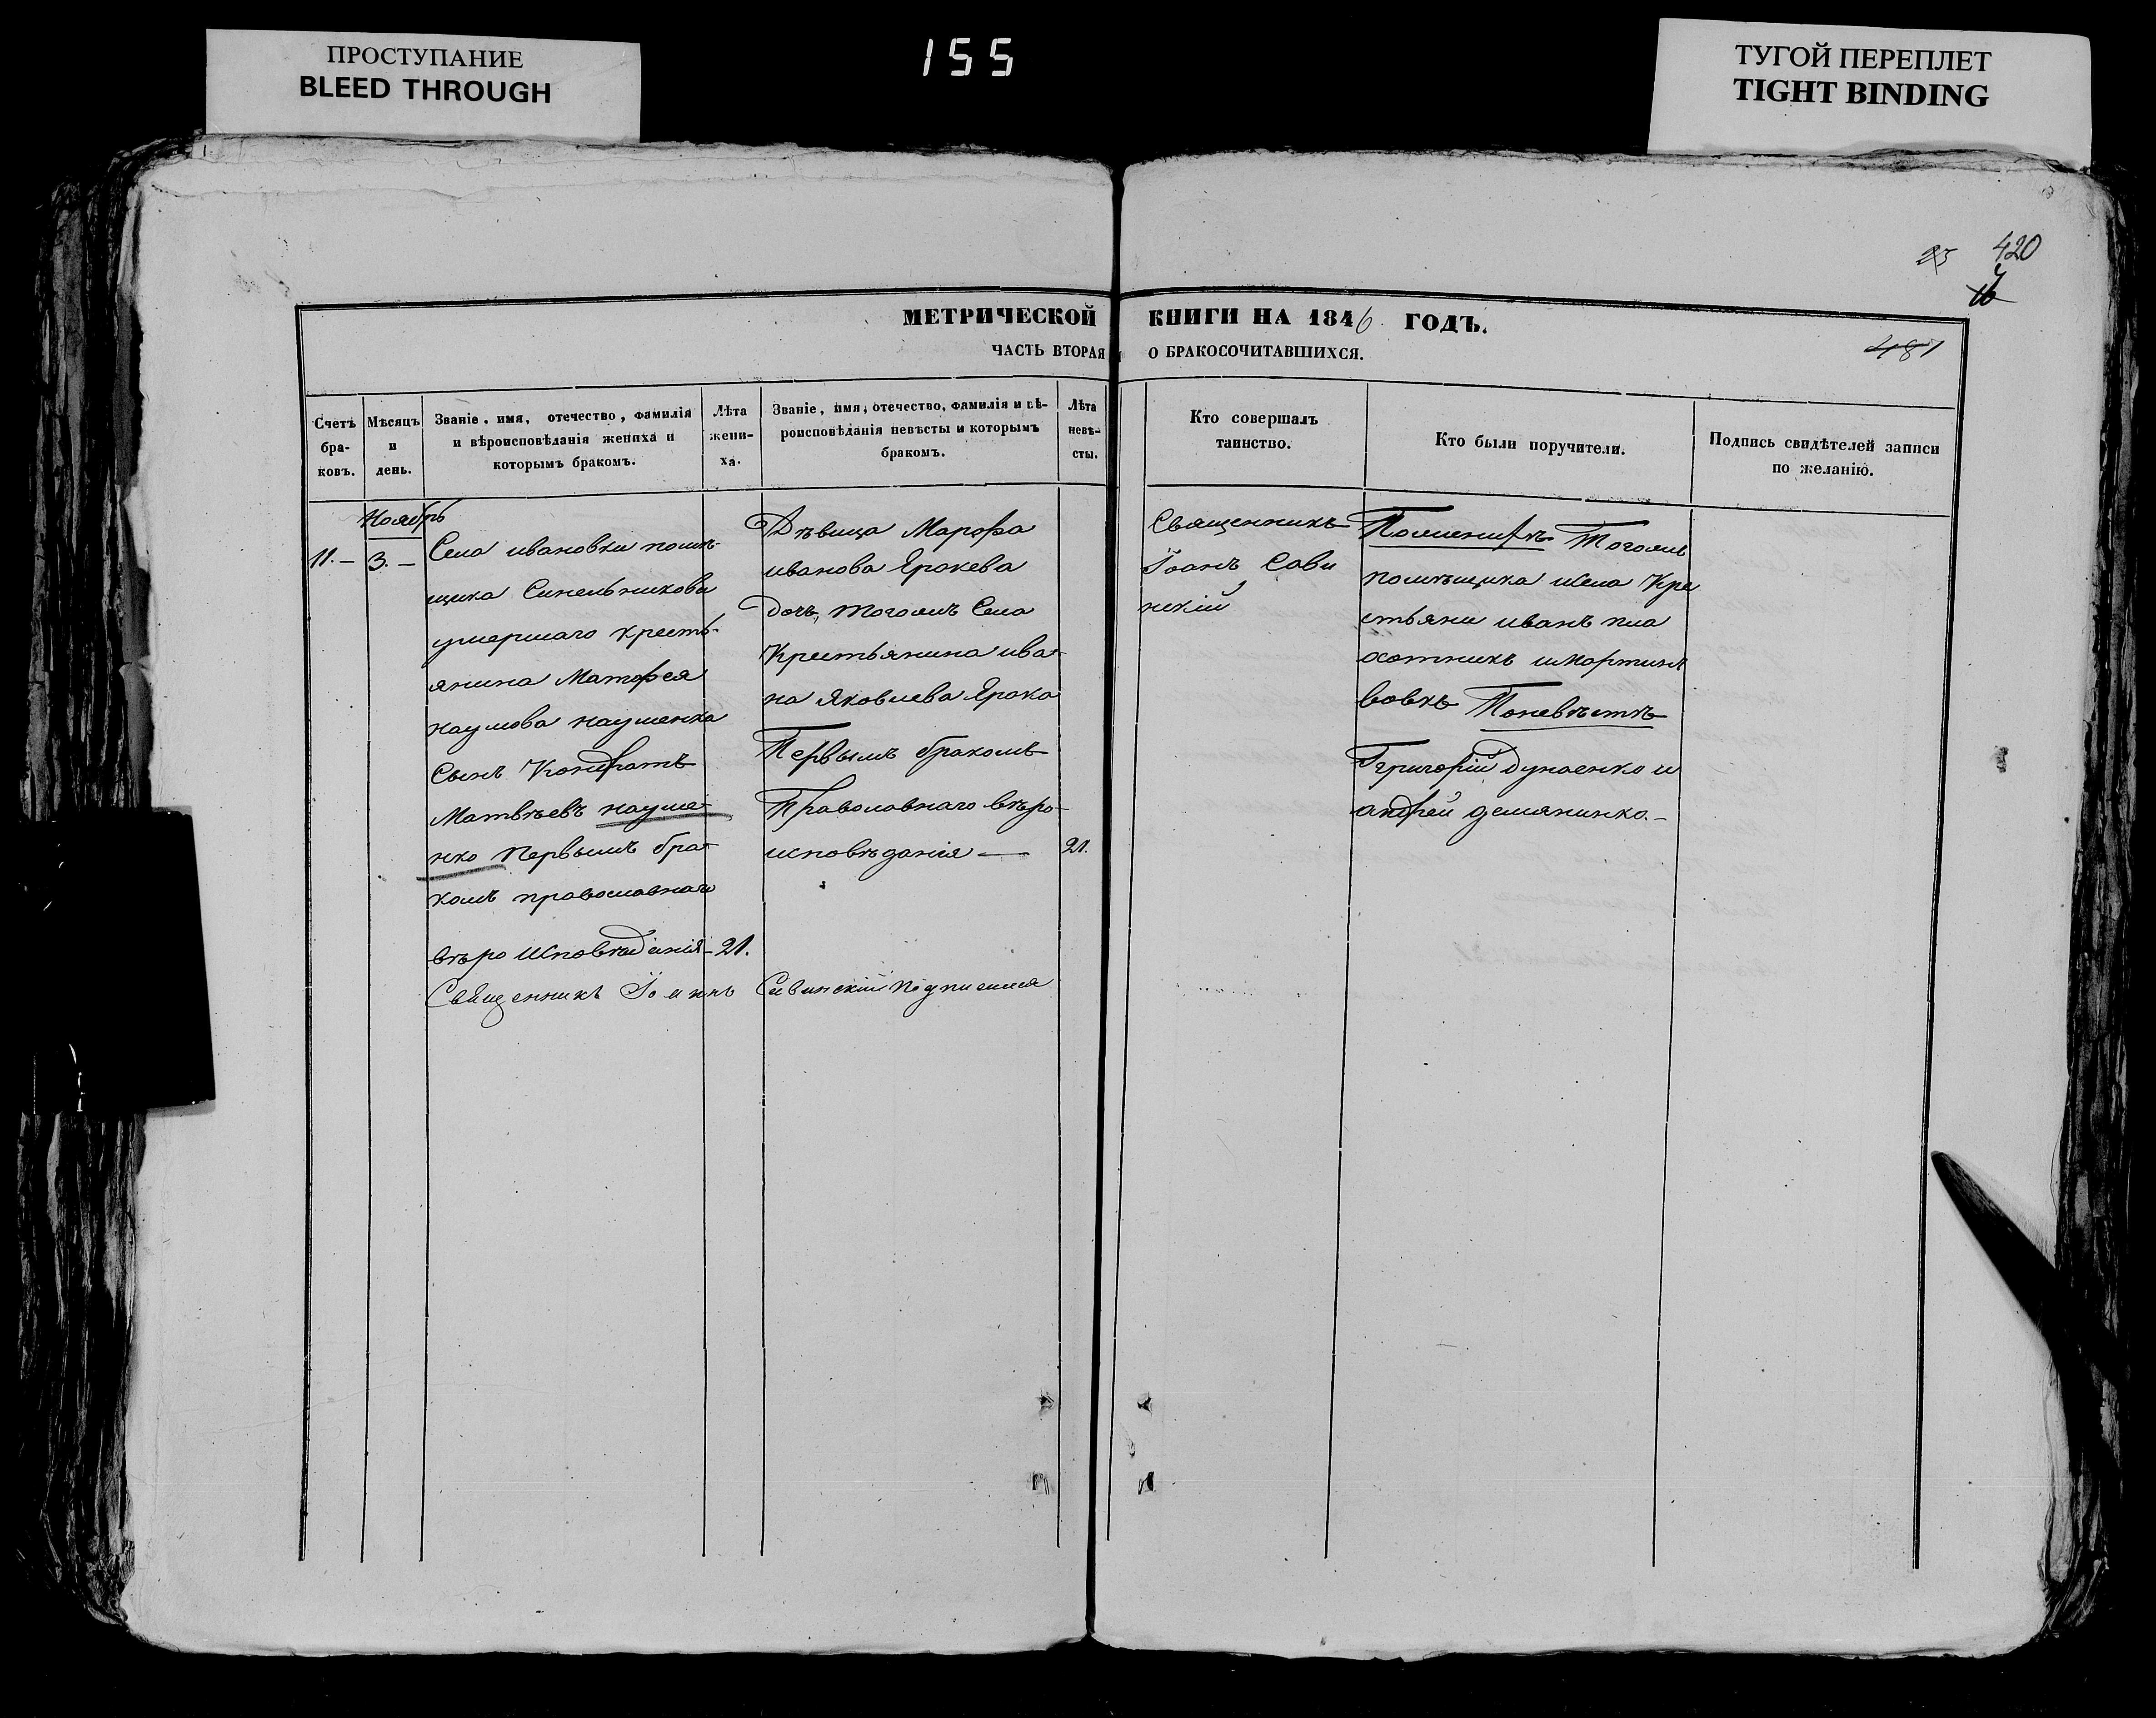 ПРОСТУПАНИЕ
BLEED THROUGH
155
ТУГОЙ ПЕРЕПЛЕТ
TIGHT BINDING
23 420
МЕТРИЧЕСКОЙ КНИГИ НА 1846 ГОДЪ.
ЧАСТЬ ВТОРАЯ О БРАКОСОЧИТАВШИХСЯ.
481
Счетъ
бра-
ковъ.
Мѣсяцъ
и
день.
Званіе, имя, отечество, фамилія
и вѣроисповѣданія жениха и
которымъ бракомъ.
Лѣта
жени-
ха.
Званіе, имя, отечество, фамилія и вѣ-
роисповѣданія невѣсты и которымъ
бракомъ.
Лѣта
невѣ-
сты.
Кто совершалъ
таинство.
Кто были поручители.
Подпись свидѣтелей записи
по желанію.
11.-
Ноябрь
3.-
Села ивановки помѣ-
щика Синельникова
умершаго кресть-
янина Матфея
наумова науменка
Сынъ Кондратъ
Матвѣевъ науме-
нко первымъ бра-
комъ православнаго
вѣро исповѣданія - 21.
Дѣвица Марфа
иванова Ярокева
дочь, тогожъ Села
Крестьянина ива-
на Яковлева Ярока
Первымъ бракомъ
Православнаго вѣро-
исповѣданія — 21.
Священникъ Іоаннъ Савинскій подписался
Священникъ
Іоанъ Сави
нскій
Поженихѣ Тогоже
помѣщика исела Кре
стьяни иванъ пла
хотникъ имартинъ
вовкъ Поневѣстѣ
Григорій Дунаенко и
андрей демяненко.-